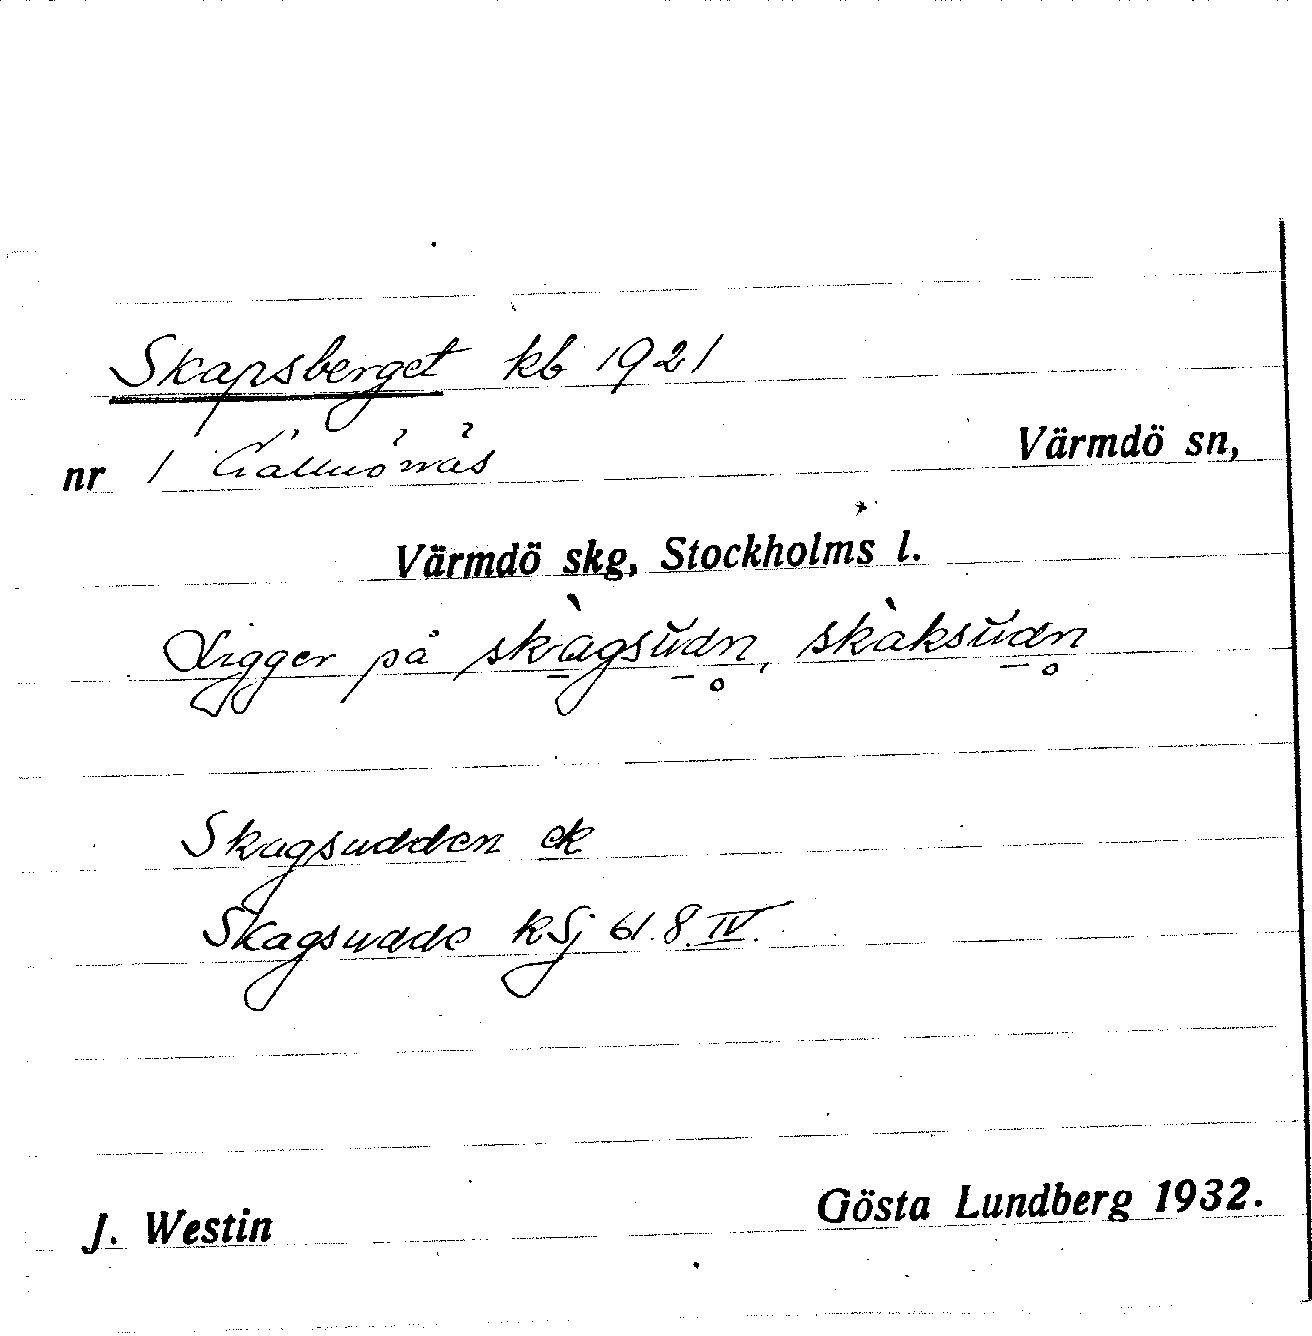 Skapsberget kb 1921
nr 1 Gällnönäs Värmdö sn,
Värmdö skg, Stockholms l.
Ligger på skàgsŭdn̥, skàksŭdn̥
Skagsudden ek
Skagsudde kSj 61.8.IV.
J. Westin Gösta Lundberg 1932.